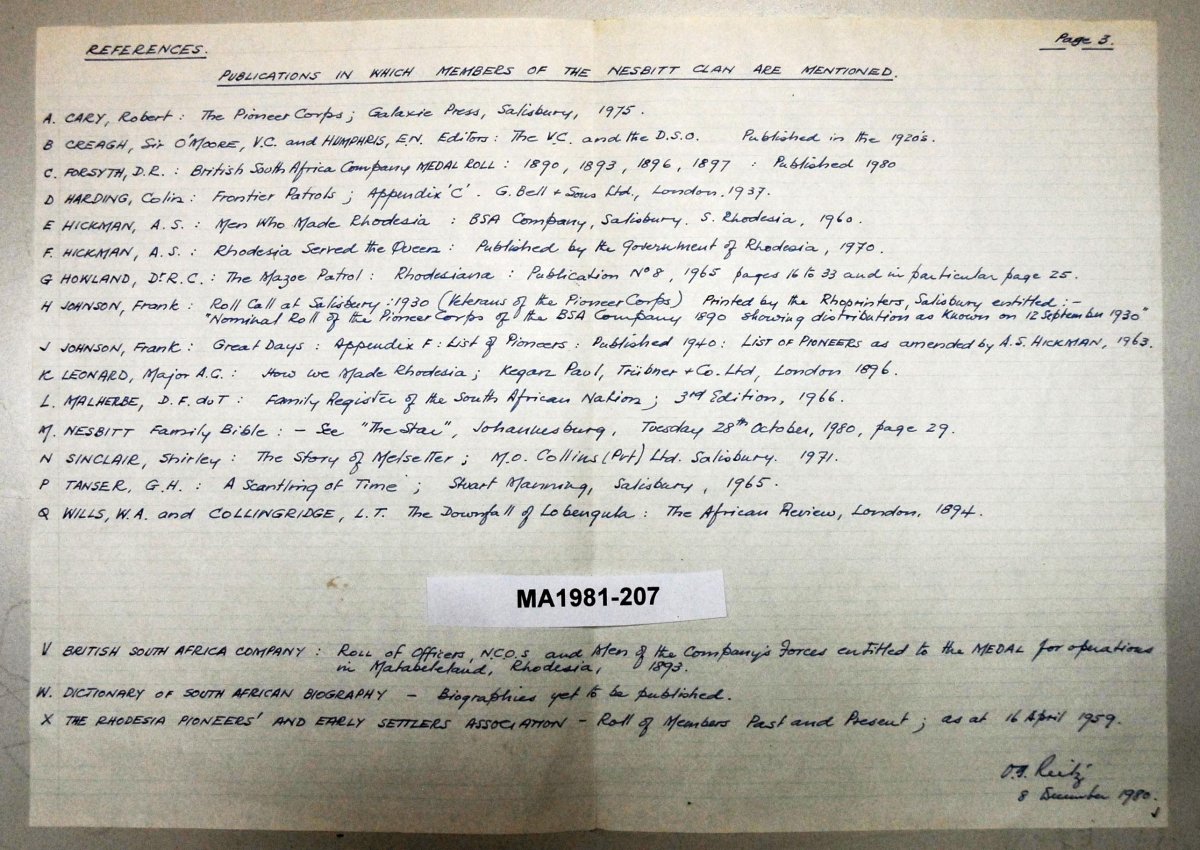 REFERENCES.
Page 3.
PUBLICATIONS IN WHICH MEMBERS OF THE NESBITT CLAN ARE MENTIONED.
A. CARY, Robert : The Pioneer Corps ; Galaxie Press, Salisbury, 1975.
B CREAGH, Sir O'MOORE, V.C. and HUMPHRIS, E.N. Editors : The V.C. and the D.S.O. Published in the 1920's.
C. FORSYTH, D.R. : British South Africa Company MEDAL ROLL : 1890, 1893, 1896, 1897 : Published 1980
D HARDING, Colin : Frontier Patrols ; Appendix 'C'. G. Bell + Sons Ltd., London. 1937.
E HICKMAN, A.S. : Men Who Made Rhodesia : BSA Company, Salisbury. S. Rhodesia, 1960.
F. HICKMAN, A.S. : Rhodesia Served the Queen : Published by the Government of Rhodesia, 1970.
G HOWLAND, Dr R.C. : The Mazoe Patrol : Rhodesiana : Publication No 8, 1965 pages 16 to 33 and in particular page 25.
H JOHNSON, Frank : Roll Call at Salisbury : 1930 (Veterans of the Pioneer Corps) Printed by the Rhoprinters, Salisbury entitled :-
"Nominal Roll of the Pioneer Corps of the BSA Company 1890 showing distribution as known on 12 September 1930"
J JOHNSON, Frank : Great Days : Appendix F : List of Pioneers : Published 1940 : LIST OF PIONEERS as amended by A.S. HICKMAN, 1963.
K LEONARD, Major A.G. : How we Made Rhodesia ; Kegan Paul, Trübner + Co. Ltd, London 1896.
L. MALHERBE, D.F. du T : Family Register of the South African Nation ; 3rd Edition, 1966.
M. NESBITT Family Bible : - See "The Star", Johannesburg, Tuesday 28th October, 1980, page 29.
N SINCLAIR, Shirley : The Story of Melsetter ; M.O. Collins (Pvt) Ltd. Salisbury. 1971.
P TANSER, G.H. : A Scantling of Time ; Stuart Manning, Salisbury, 1965.
Q WILLS, W.A. and COLLINGRIDGE, L.T. The Downfall of Lobengula : The African Review, London, 1894.
MA1981-207
V BRITISH SOUTH AFRICA COMPANY : ROLL of Officers, N.C.O.s and Men of the Company's Forces entitled to the MEDAL for operations
in Matabeleland, Rhodesia, 1893.
W. DICTIONARY OF SOUTH AFRICAN BIOGRAPHY - Biographies yet to be published.
X THE RHODESIA PIONEERS' AND EARLY SETTLERS ASSOCIATION - Roll of Members Past and Present ; as at 16 April 1959.
Reitz
8 December 1980.